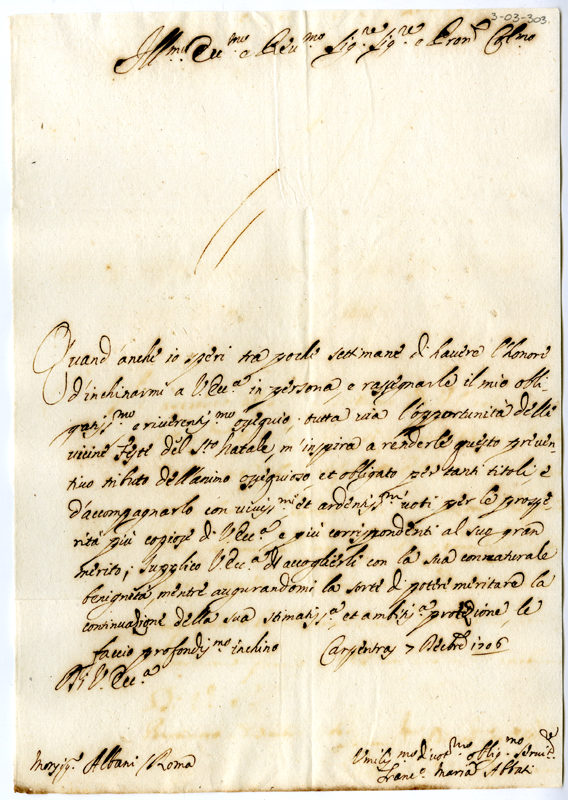 3-03-303.
Ill.mo Ecc.mo e Rev.mo Sig.re Sig.re e Pron Col.mo
Quand' anche io speri tra poche settimane di havere l'honore
d'inchinarmi a V. Ecc.a in persona, e rassegnarle il mio obli-
gatiss.mo e riverentiss.mo ossequio tutta via l'opportunità delle
vicine Feste del S.to Natale, m'inspira a renderle questo preven-
tivo tributo dell'animo ossequioso et obligato per tanti titoli e
d'accompagnarlo con vivissmi et ardentissmi voti per le prospe-
rità più copiose di V. Ecc.a e più corrispondenti al suo gran
merito; supplico V. Ecc.a d'accoglierli con la sua connaturale
benignità mentre augurandomi la sorte di poter meritare la
continuazione della sua stimatiss.a et ambitiss.a protezione, le
faccio profondiss.mo inchino Carpentras 7 Decbre 1706
Di V. Ecc.a
Monsig.r Albani / Roma
Umiliss.mo Divot.mo Oblig.mo Servit.e
Franc.o Maria Abbati